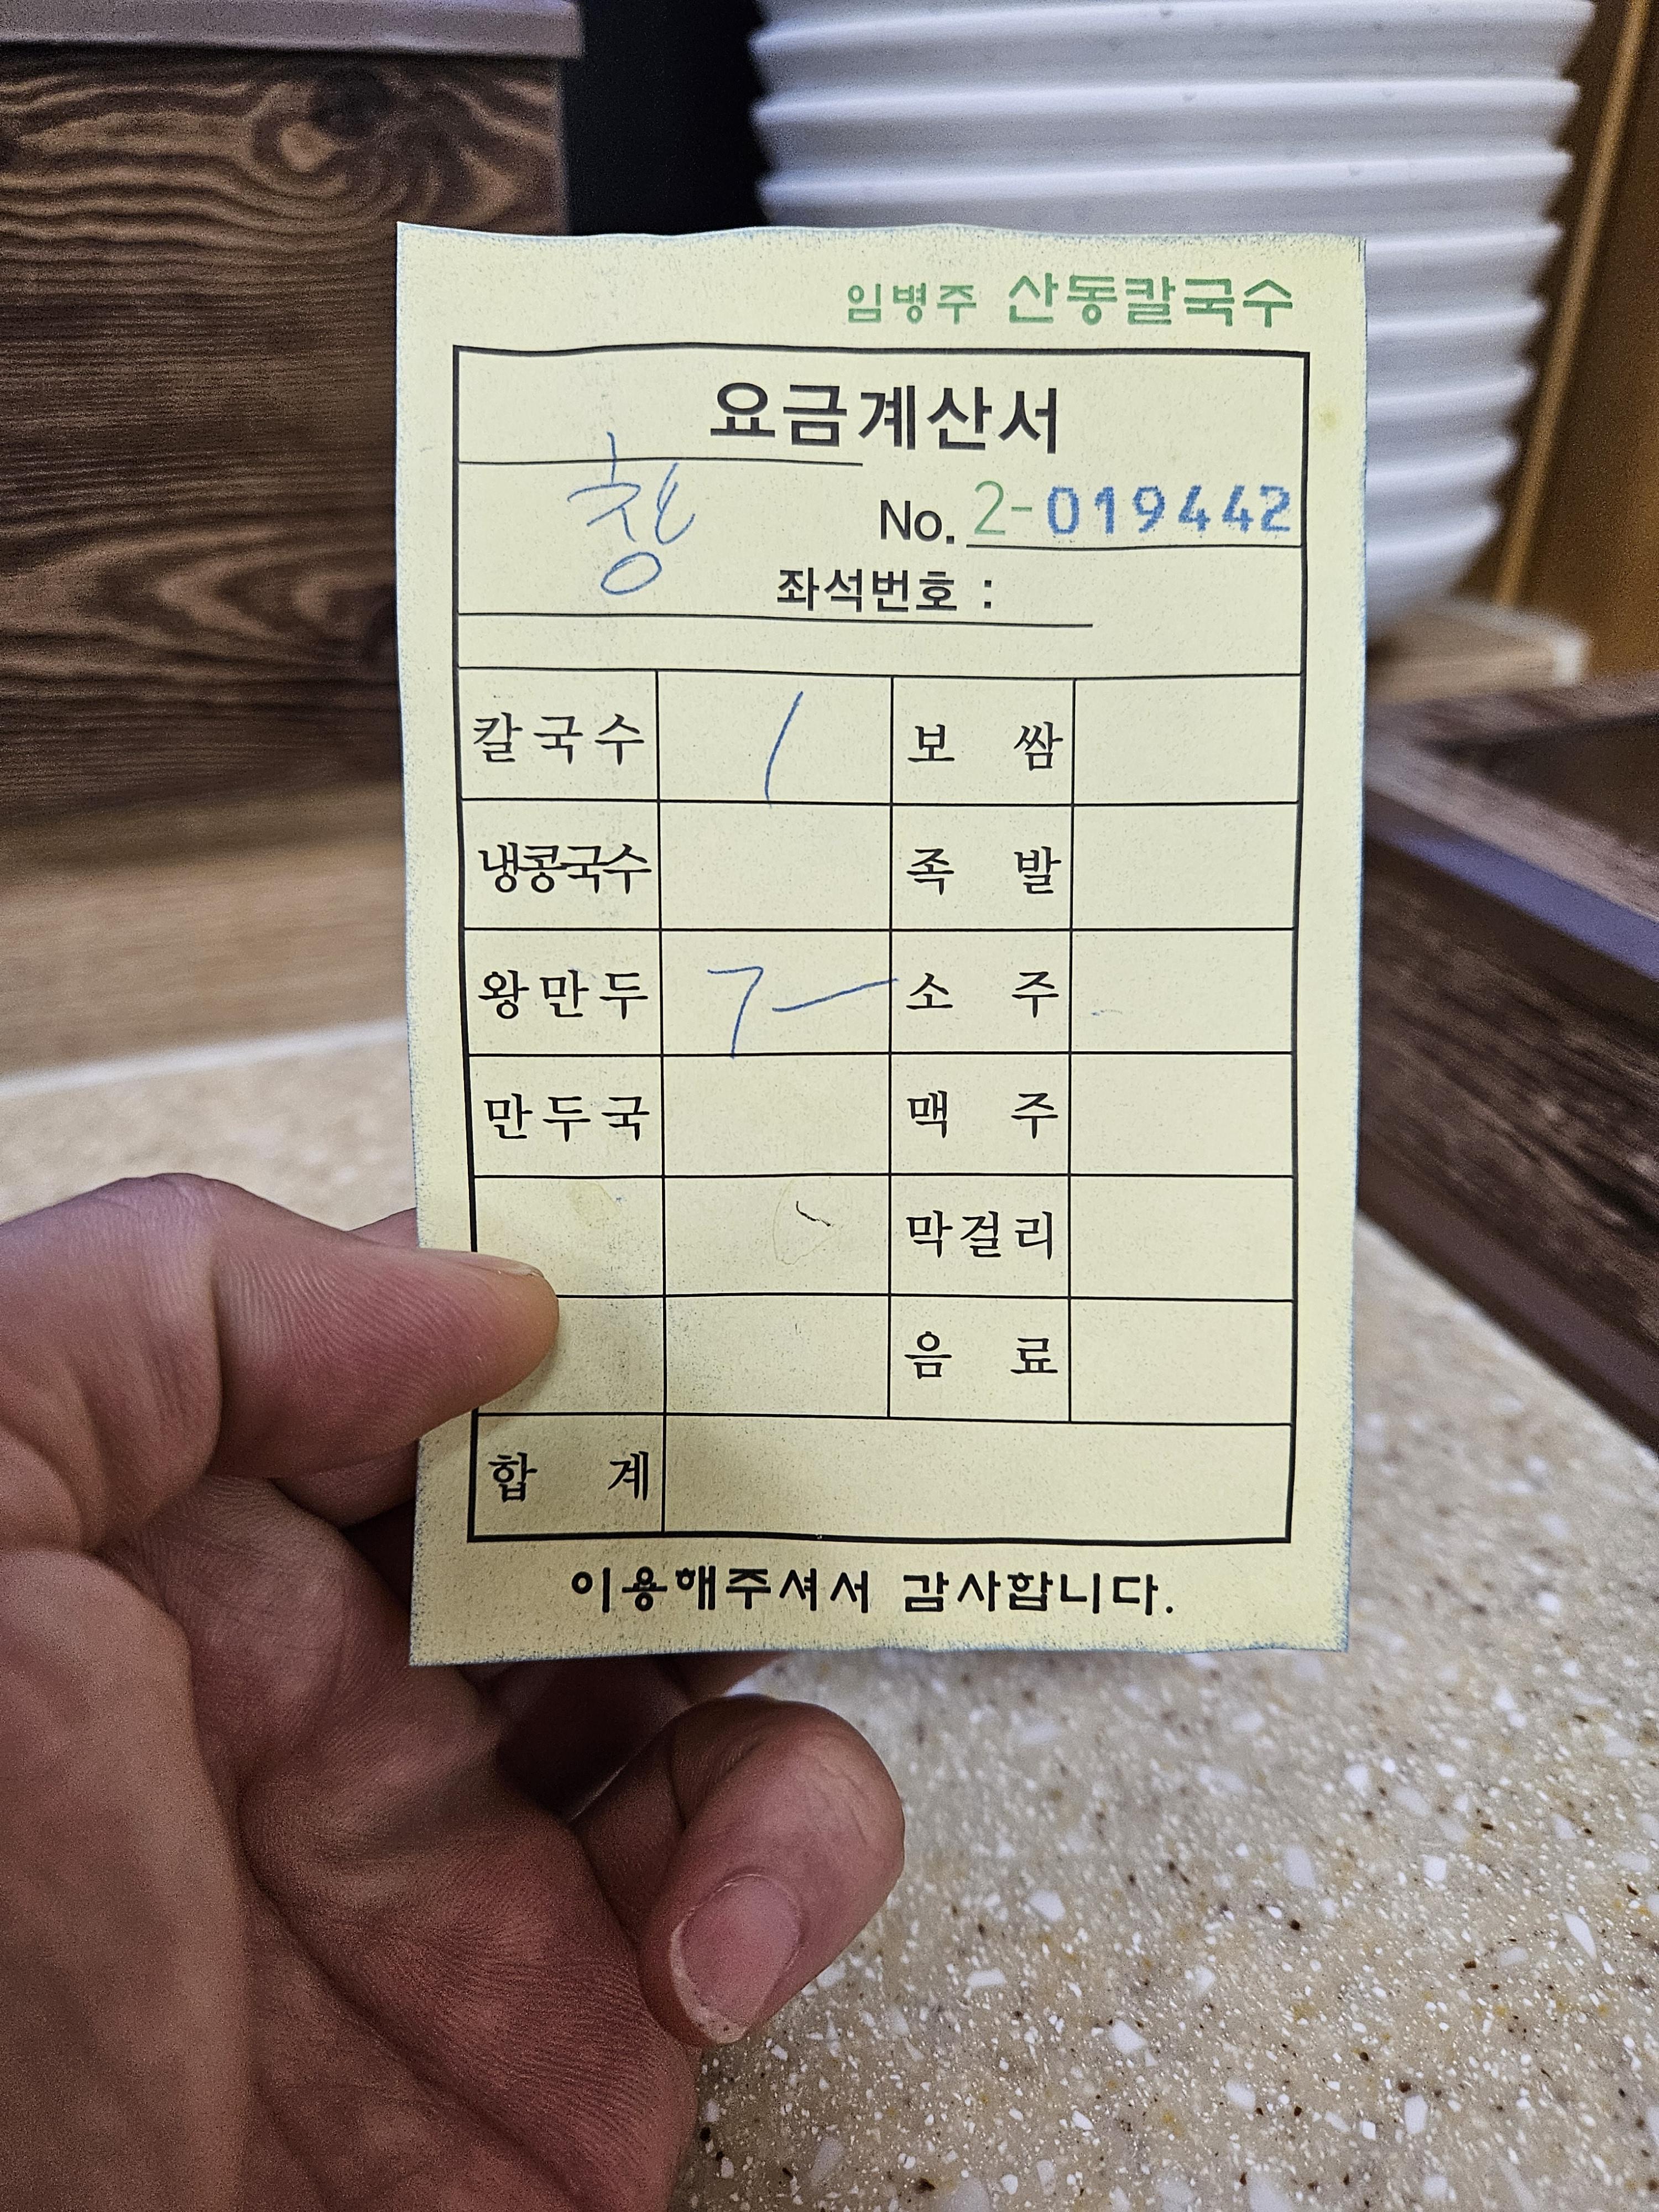 임병주 산동칼국수
요금계산서
창
No. 2-019442
좌석번호 :
칼국수 1 보 쌈
냉콩국수 족 발
왕만두 7 소 주
만두국 맥 주
막걸리
음 료
합 계
이용해주셔서 감사합니다.